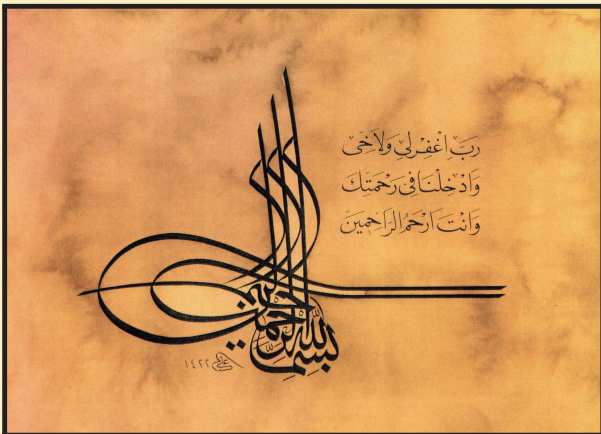 رَبِّ اغْفِرْلِي وَلِاَخِى
وَاَدْخِلْنَا فِى رَحْمَتِكَ
وَاَنْتَ اَرْحَمُ الرَّاحِمِينَ
بسم الله الرحمن الرحيم
١٤٢٢